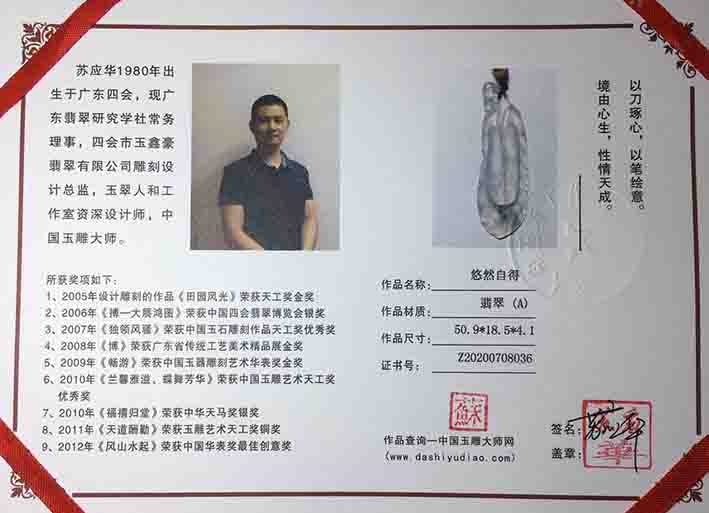 苏应华1980年出
生于广东四会，现广
东翡翠研究学社常务
理事，四会市玉鑫豪
翡翠有限公司雕刻设
计总监，玉翠人和工
作室资深设计师，中
国玉雕大师。
以刀琢心，以笔绘意。
境由心生，性情天成。
所获奖项如下：
1、2005年设计雕刻的作品《田园风光》荣获天工奖金奖
2、2006年《搏一大展鸿图》荣获中国四会翡翠博览会银奖
3、2007年《独领风骚》荣获中国玉石雕刻作品天工奖优秀奖
4、2008年《博》荣获广东省传统工艺美术精品展金奖
5、2009年《畅游》荣获中国玉器雕刻艺术华表奖金奖
6、2010年《兰馨雅溢、蝶舞芳华》荣获中国玉雕艺术天工奖
优秀奖
7、2010年《福禧归堂》荣获中华天马奖银奖
8、2011年《天道酬勤》荣获玉雕艺术天工奖铜奖
9、2012年《风山水起》荣获中国华表奖最佳创意奖
作品名称： 悠然自得
作品材质： 翡翠 (A)
作品尺寸： 50.9*18.5*4.1
证书号： Z20200708036
作品查询—中国玉雕大师网
(www.dashiyudiao.com)
签名：
盖章：